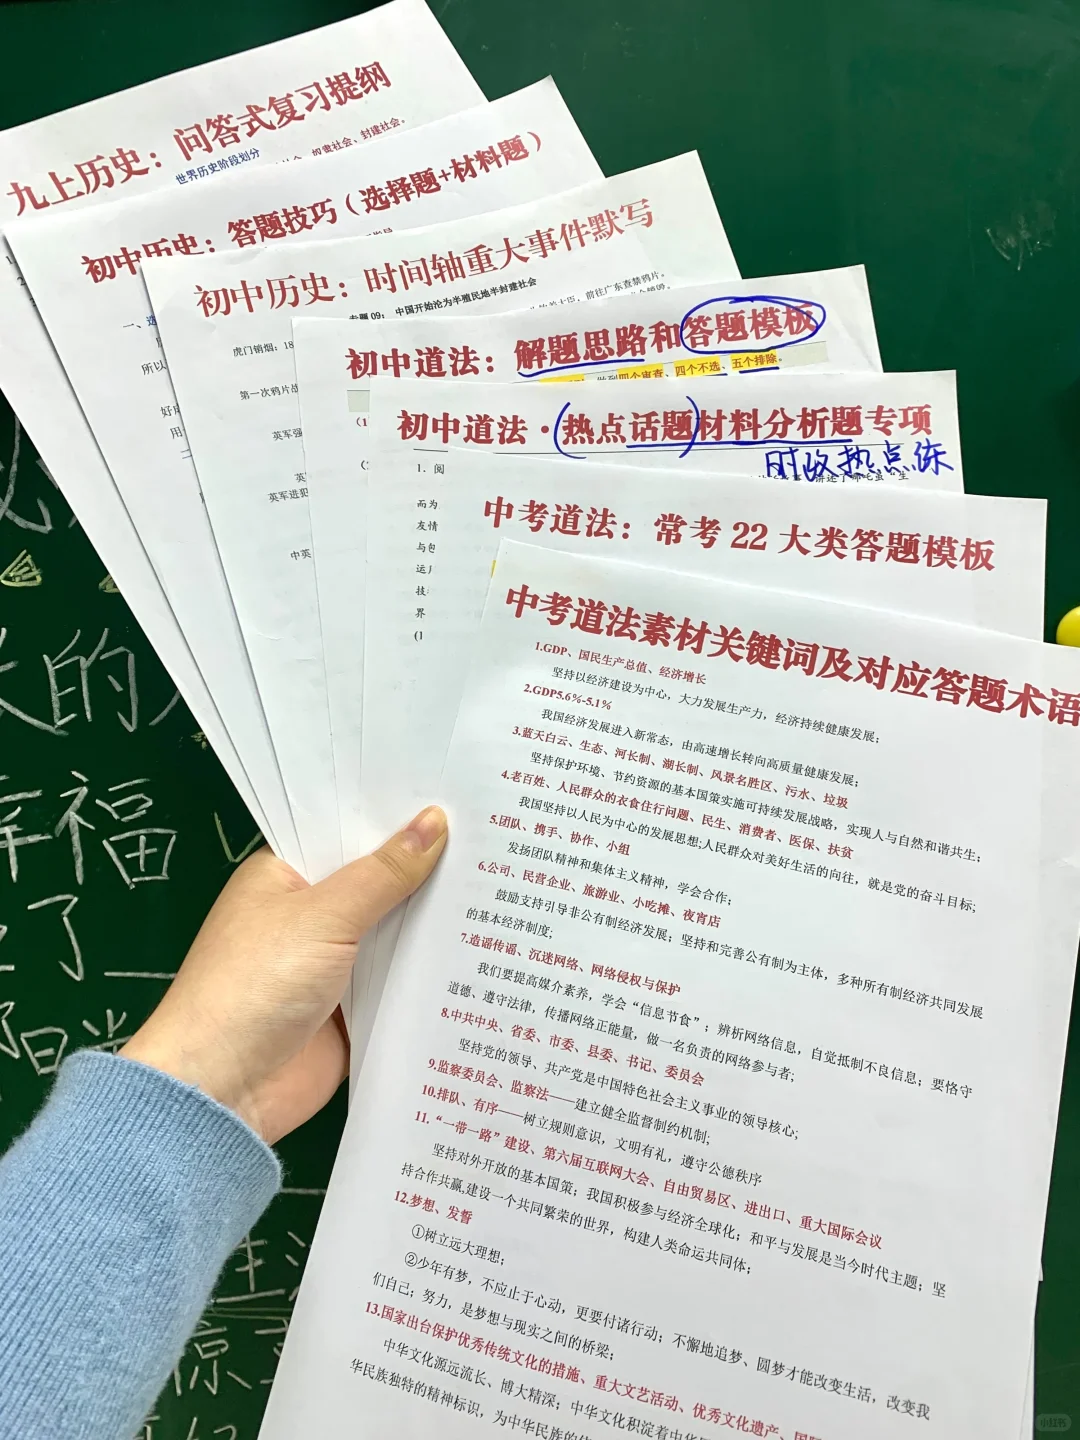 九上历史：问答式复习提纲
世界历史阶段划分
奴隶社会、封建社会。
初中历史：答题技巧（选择题+材料题）
一、选
所以
好
用
二
初中历史：时间轴重大事件默写
专题09： 中国开始沦为半殖民地半封建社会
大臣，前往广东查禁鸦片。
虎门销烟：18
第一次鸦片战
英军强
英
英军进犯
中英
初中道法：解题思路和答题模板
做到四个审查、四个不选、五个排除。
初中道法·(热点话题)材料分析题专项
时政热点练
1. 阅
而为
友情
与包
运
技
界
(1
中考道法：常考 22 大类答题模板
中考道法素材关键词及对应答题术语
1.GDP、国民生产总值、经济增长
坚持以经济建设为中心，大力发展生产力，经济持续健康发展；
2.GDP5.6%-5.1%
我国经济发展进入新常态，由高速增长转向高质量健康发展；
3.蓝天白云、生态、河长制、湖长制、风景名胜区、污水、垃圾
坚持保护环境、节约资源的基本国策实施可持续发展战略，实现人与自然和谐共生；
4.老百姓、人民群众的衣食住行问题、民生、消费者、医保、扶贫
我国坚持以人民为中心的发展思想;人民群众对美好生活的向往，就是党的奋斗目标;
5.团队、携手、协作、小组
发扬团队精神和集体主义精神，学会合作；
6.公司、民营企业、旅游业、小吃摊、夜宵店
鼓励支持引导非公有制经济发展；坚持和完善公有制为主体，多种所有制经济共同发展
的基本经济制度;
7.造谣传谣、沉迷网络、网络侵权与保护
我们要提高媒介素养，学会“信息节食”；辨析网络信息，自觉抵制不良信息；要恪守
道德、遵守法律，传播网络正能量，做一名负责的网络参与者;
8.中共中央、省委、市委、县委、书记、委员会
坚持党的领导、共产党是中国特色社会主义事业的领导核心;
9.监察委员会、监察法——建立健全监督制约机制;
10.排队、有序——树立规则意识，文明有礼，遵守公德秩序
11.“一带一路”建设、第六届互联网大会、自由贸易区、进出口、重大国际会议
坚持对外开放的基本国策；我国积极参与经济全球化；和平与发展是当今时代主题；坚
持合作共赢,建设一个共同繁荣的世界，构建人类命运共同体；
12.梦想、发誓
①树立远大理想；
②少年有梦，不应止于心动，更要付诸行动；不懈地追梦、圆梦才能改变生活，改变我
们自己；努力，是梦想与现实之间的桥梁；
13.国家出台保护优秀传统文化的措施、重大文艺活动、优秀文化遗产、国
中华文化源远流长、博大精深；中华文化积淀着中华
华民族独特的精神标识，为中华民族的
的
幸福
了
阳
小红书